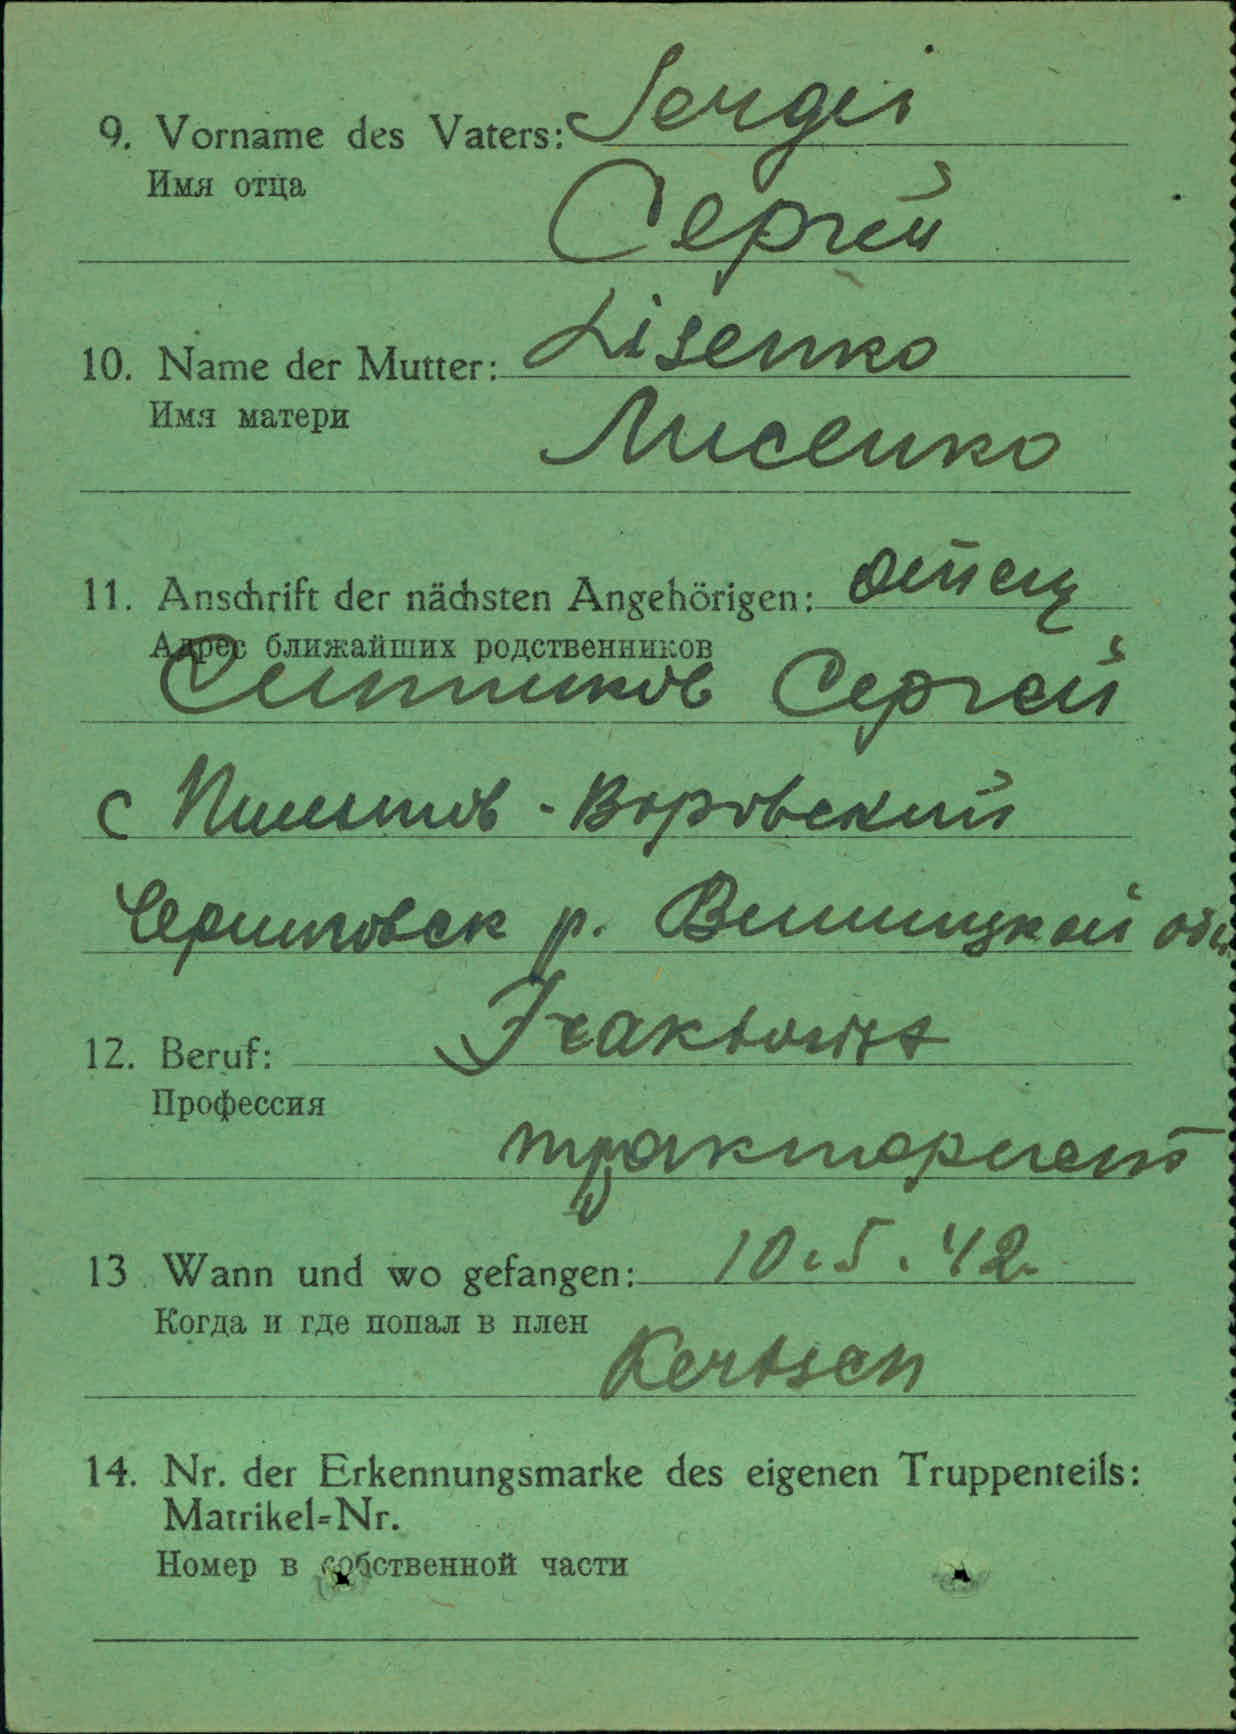 9. Vorname des Vaters: Sergei
Имя отца
Сергей
10. Name der Mutter: Lisenko
Имя матери
Лисенко
11. Anschrift der nächsten Angehörigen: отец
Адрес ближайших родственников
Ситников Сергей
с - Воровский
р. Винницкой обл.
12. Beruf: Traktorist
Профессия
тракторист
13 Wann und wo gefangen: 10.5.42
Когда и где попал в плен
Kertsch
14. Nr. der Erkennungsmarke des eigenen Truppenteils:
Matrikel=Nr.
Номер в собственной части